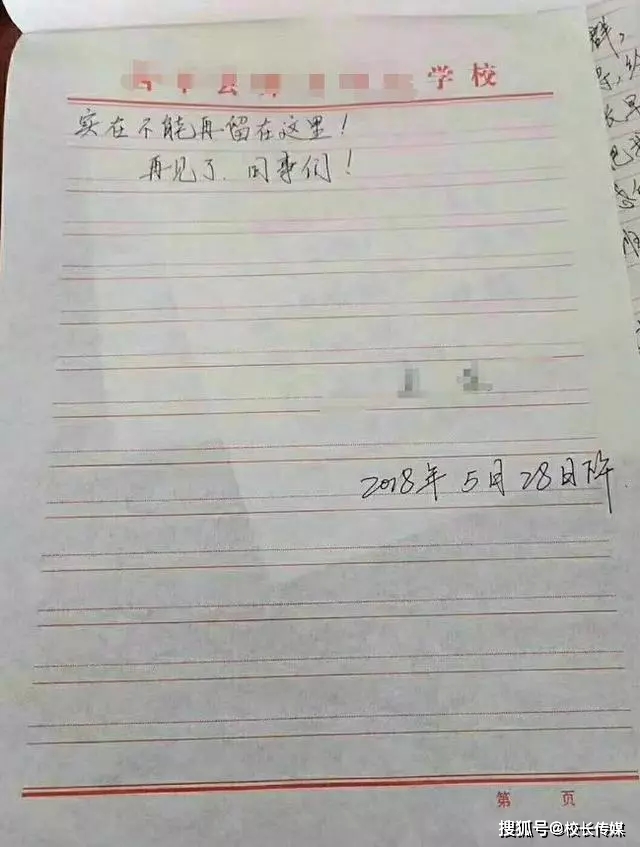 学校
群，
实在不能再留在这里！
再见了、同事们！
2018年 5月 28日下午
第 页
搜狐号@校长传媒